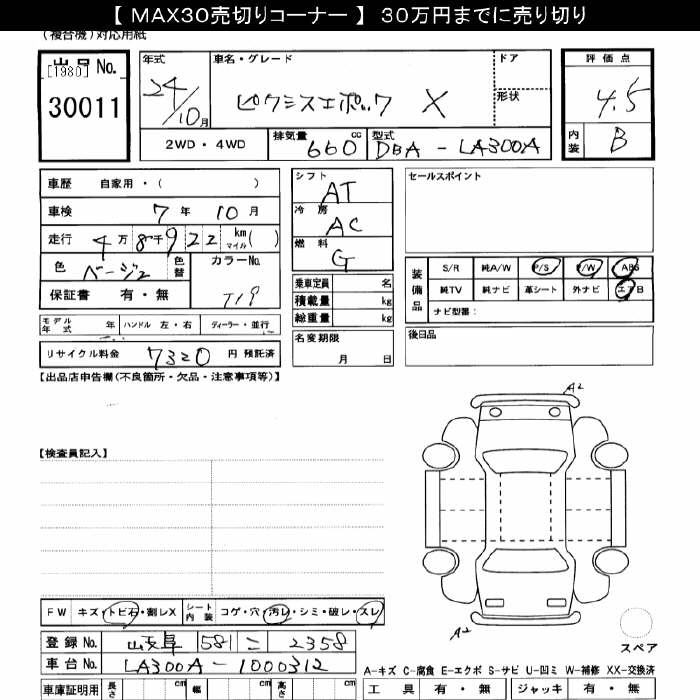 【 MAX30売切りコーナー 】 30万円までに売り切り
(複合機)対応用紙
出品 No.
[1980]
30011
年式
24/10月
車名・グレード
ピクシスエポック X
ドア
形状
評価点
4.5
内装 B
2WD・4WD
排気量 660 cc
型式 DBA - LA300A
車歴 自家用・( )
車検 7年 10月
走行 4万8千922 km マイル ( )
色 ベージュ 色替
カラーNo. T19
保証書 有・無
シフト AT
冷房 AC
燃料 G
乗車定員 名
積載量 kg
総重量 kg
名変期限
月 日
セールスポイント
装備品
S/R 純A/W P/S P/W ABS
純TV 純ナビ 革シート 外ナビ エアB
ナビ型番:
後日品
モデル年式 年 ハンドル 左・右 ディーラー・並行
リサイクル料金 7320 円 預託済
【出品店申告欄(不良箇所・欠品・注意事項等)】
【検査員記入】
A2
A2
スペア
FW キズ・トビ石・割レX
シート内装 コゲ・穴・汚レ・シミ・破レ・スレ
登録 No. 岐阜 581 こ 2358
車台 No. LA300A - 1000312
A-キズ C-腐食 E-エクボ S-サビ U-凹ミ W-補修 XX-交換済
車庫証明用 長さ cm 幅 cm 高さ cm
工具 有・無 ジャッキ 有・無